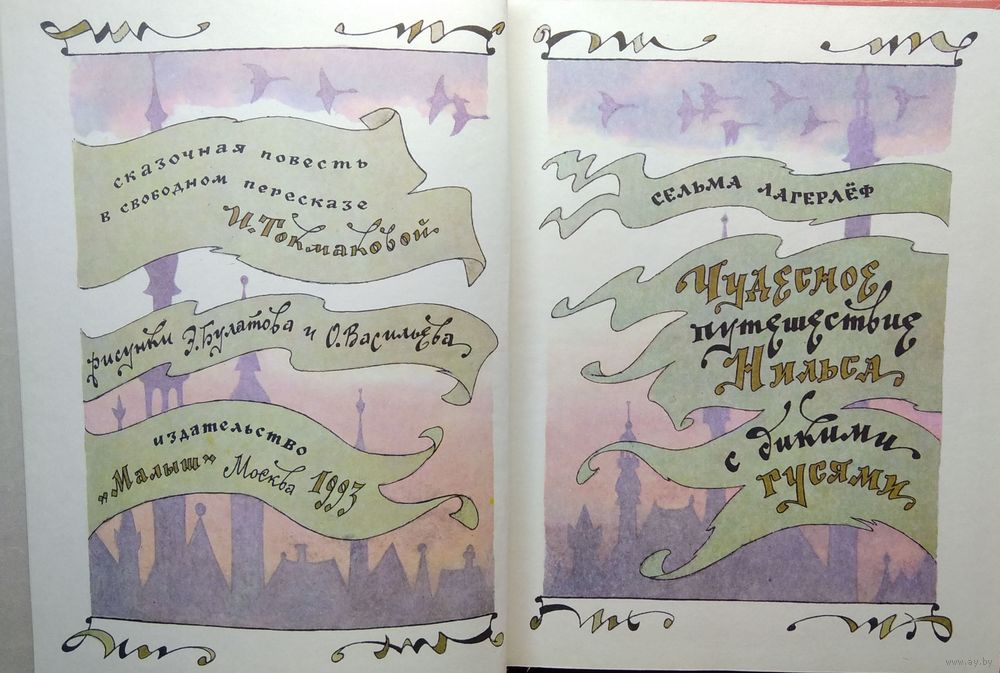 сказочная повесть
в свободном пересказе
И. Токмаковой
рисунки Э. Булатова и О. Васильева
издательство
„Малыш“ Москва 1993
СЕЛЬМА ЛАГЕРЛЁФ
Чудесное
путешествие
Нильса
с дикими
гусями
www.ay.by